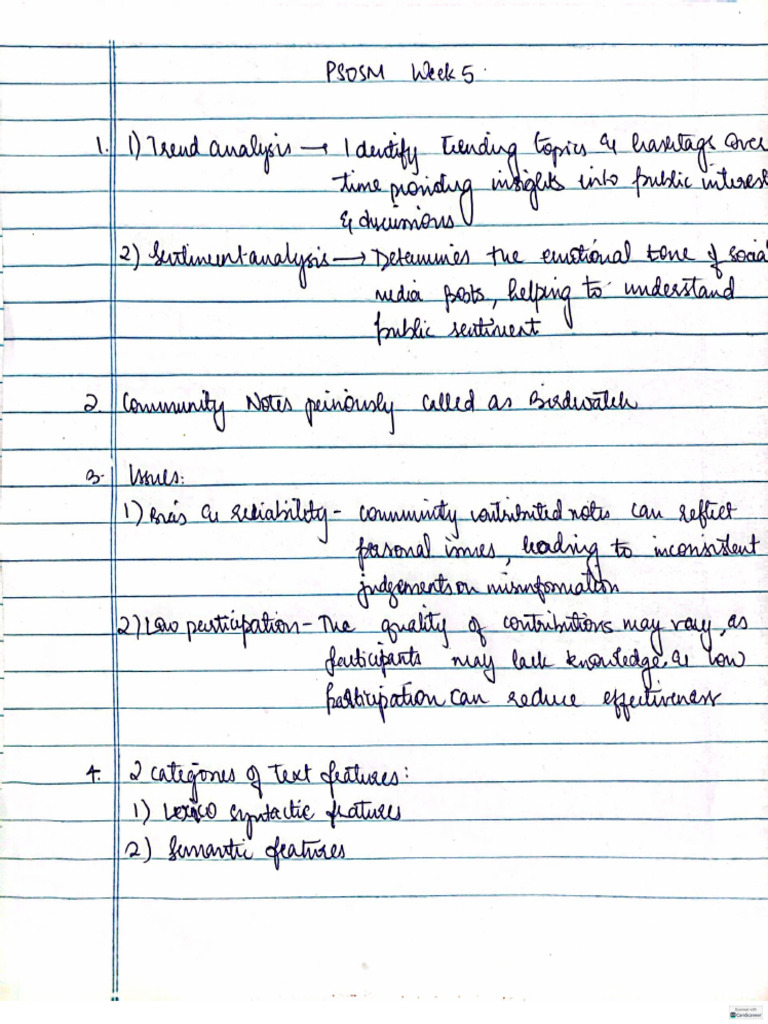 PSOSM Week 5.
1. 1) Trend analysis → Identify trending topics & hashtags over
time providing insights into public interest
& discussions
2) Sentiment analysis → Determines the emotional tone of social
media posts, helping to understand
public sentiment
2. Community Notes previously called as Birdwatch
3. Issues:
1) Bias & reliability - community contributed notes can reflect
personal issues, leading to inconsistent
judgements on misinformation
2) Low participation - The quality of contributions may vary, as
participants may lack knowledge & low
participation can reduce effectiveness
4. 2 categories of text features:
1) Lexico syntactic features
2) Semantic features
Scanned with
CamScanner